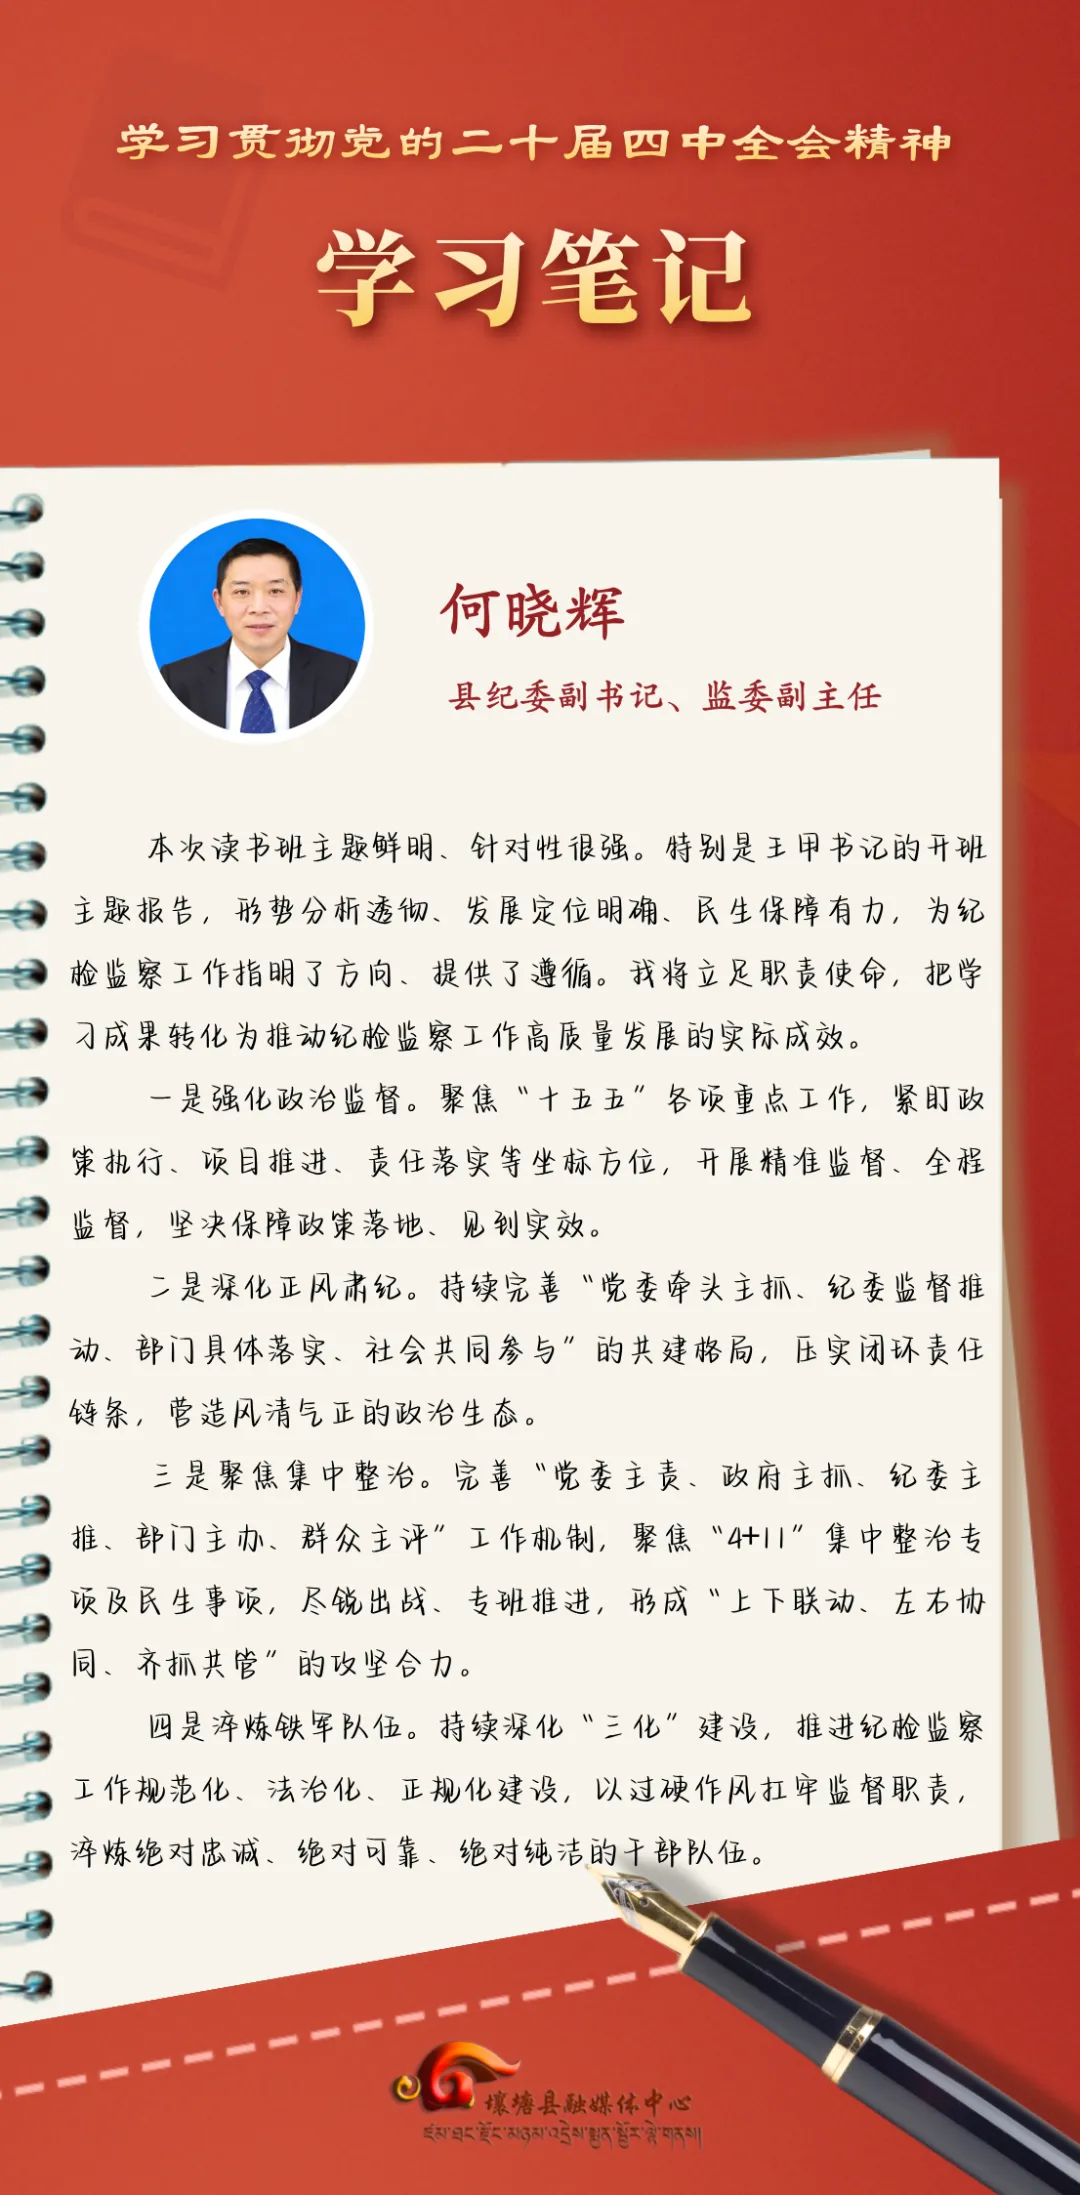 学习贯彻党的二十届四中全会精神
学习笔记
何晓辉
县纪委副书记、监委副主任
本次读书班主题鲜明、针对性很强。特别是王甲书记的开班
主题报告，形势分析透彻、发展定位明确、民生保障有力，为纪
检监察工作指明了方向、提供了遵循。我将立足职责使命，把学
习成果转化为推动纪检监察工作高质量发展的实际成效。
一是强化政治监督。聚焦“十五五”各项重点工作，紧盯政
策执行、项目推进、责任落实等坐标方位，开展精准监督、全程
监督，坚决保障政策落地、见到实效。
二是深化正风肃纪。持续完善“党委牵头主抓、纪委监督推
动、部门具体落实、社会共同参与”的共建格局，压实闭环责任
链条，营造风清气正的政治生态。
三是聚焦集中整治。完善“党委主责、政府主抓、纪委主
推、部门主办、群众主评”工作机制，聚焦“4+11”集中整治专
项及民生事项，尽锐出战、专班推进，形成“上下联动、左右协
同、齐抓共管”的攻坚合力。
四是淬炼铁军队伍。持续深化“三化”建设，推进纪检监察
工作规范化、法治化、正规化建设，以过硬作风扛牢监督职责，
淬炼绝对忠诚、绝对可靠、绝对纯洁的干部队伍。
壤塘县融媒体中心
ཛམ་ཐང་རྫོང་མཉམ་འདྲེས་སྨྱན་སྦྱོར་ལྟེ་གནས།